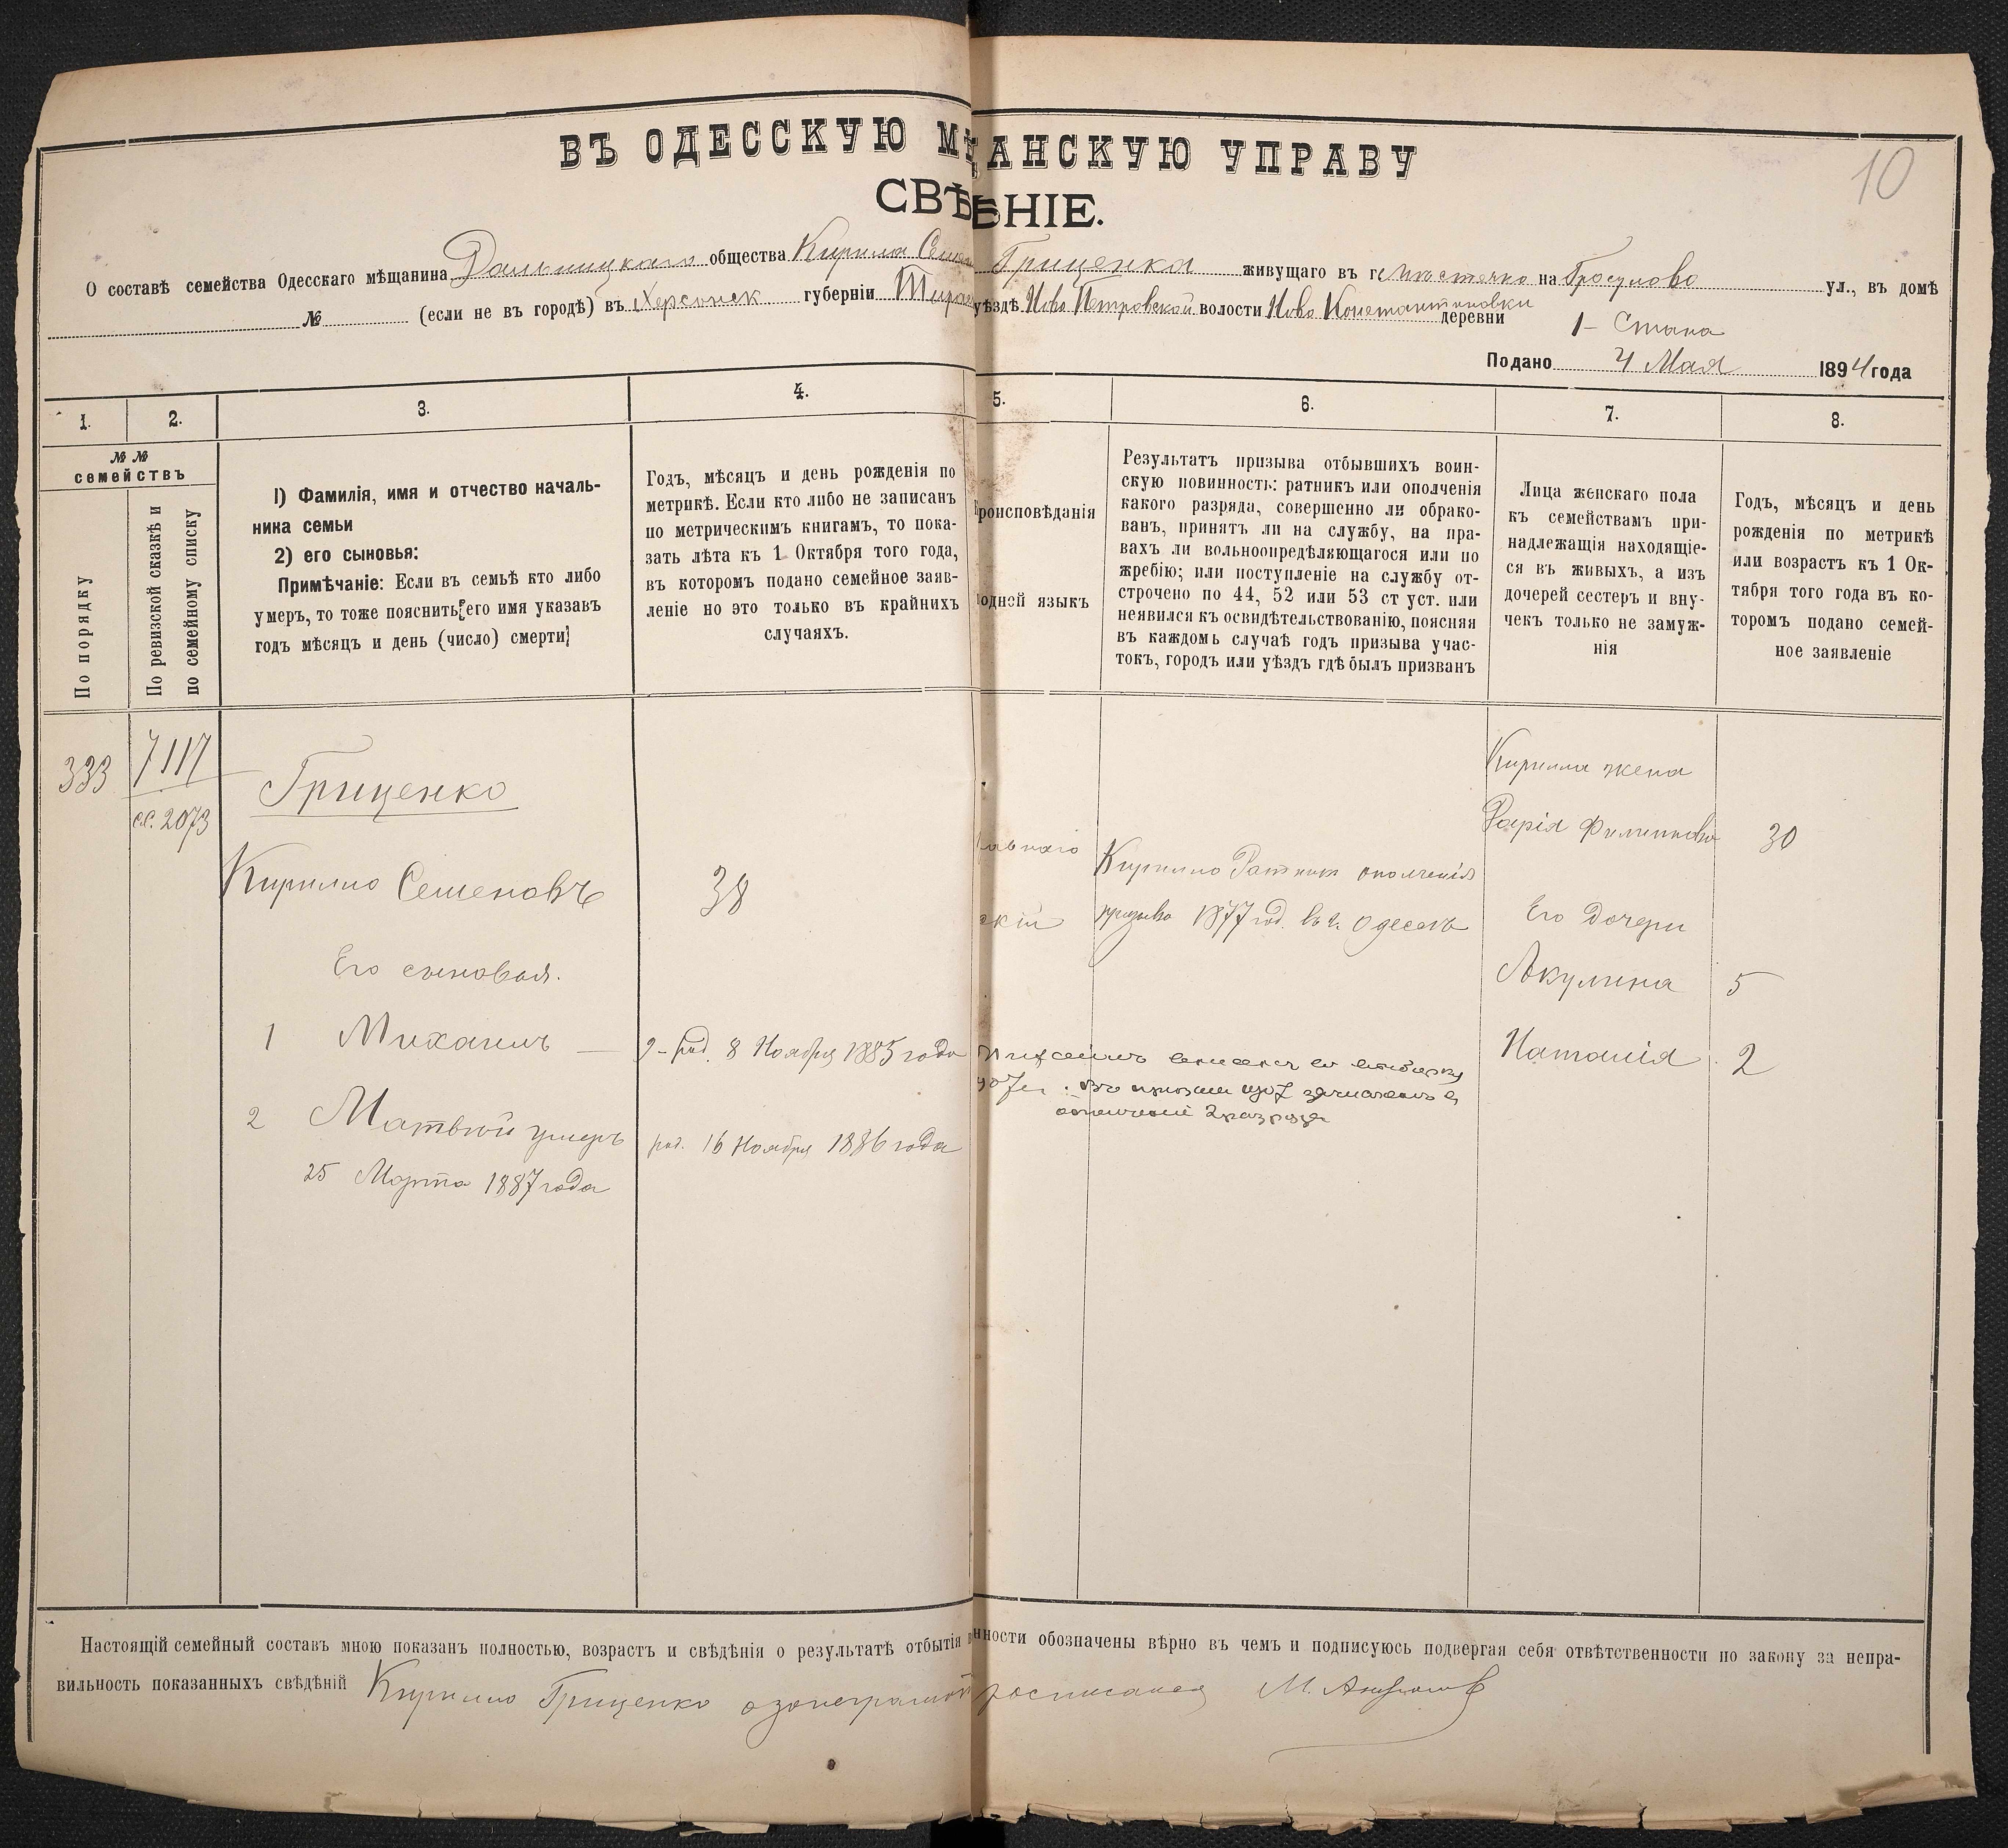 10
ВЪ ОДЕССКУЮ МѢ АНСКУЮ УПРАВУ
СВѢ ѢНІЕ.
О составѣ семейства Одесскаго мѣщанина Дальницкаго общества Кирила Семен Гриценка живущаго въ г. мѣстечко на Гросулово ул., въ домѣ
№ (если не въ городѣ) въ Херсонск губерніи Тирас уѣздѣ Ново Петровской волости Ново Константиновки деревни 1 - Стана
Подано 4 Мая 1894 года
1. 2. 3. 4. 5. 6. 7. 8.
№ №
семействъ
По порядку
По ревизской сказкѣ и
по семейному списку
1) Фамилія, имя и отчество началь-
ника семьи
2) его сыновья:
Примѣчаніе: Если въ семьѣ кто либо
умеръ, то тоже пояснить его имя указавъ
годъ мѣсяцъ и день (число) смерти
Годъ, мѣсяцъ и день рожденія по
метрикѣ. Если кто либо не записанъ
по метрическимъ книгамъ, то пока-
зать лѣта къ 1 Октября того года,
въ которомъ подано семейное заяв-
леніе но это только въ крайнихъ
случаяхъ.
роисповѣданія
одней языкъ
Результатъ призыва отбывшихъ воин-
скую повинность: ратникъ или ополченія
какого разряда, совершенно ли обрако-
ванъ, принятъ ли на службу, на пра-
вахъ ли вольноопредѣляющагося или по
жребію; или поступленіе на службу от-
строчено по 44, 52 или 53 ст уст. или
неявился къ освидѣтельствованію, поясняя
въ каждомъ случаѣ годъ призыва учас-
токъ, городъ или уѣздъ гдѣ былъ призванъ
Лица женскаго пола
къ семействамъ при-
надлежащія находящіе-
ся въ живыхъ, а изъ
дочерей сестеръ и вну-
чекъ только не замуж-
нія
Годъ, мѣсяцъ и день
рожденія по метрикѣ
или возрастъ къ 1 Ок-
тября того года въ ко-
торомъ подано семей-
ное заявленіе
333
7117
с.с. 2073
Гриценко
Кирилло Семеновъ 38
Его сыновья.
1 Михаилъ — 9 - род. 8 Ноября 1885 года
2 Матвѣй умеръ род. 16 Ноября 1886 года
25 Марта 1887 года
авнаго
скій
Кирилло Ратник ополченія
призыва 1877 год. въ г. Одессѣ
Михаилъ
1907 зачисленъ в
ополченіе 2 разряда
Кирилла жена
30
Его дочери
Акулина 5
Наталія 2
Настоящій семейный составъ мною показанъ полностью, возрастъ и свѣдѣнія о результатѣ отбытія нности обозначены вѣрно въ чемъ и подписуюсь подвергая себя отвѣтственности по закону за непра-
вильность показанныхъ свѣдѣній Кирилло Гриценко а занеграмот росписался М.